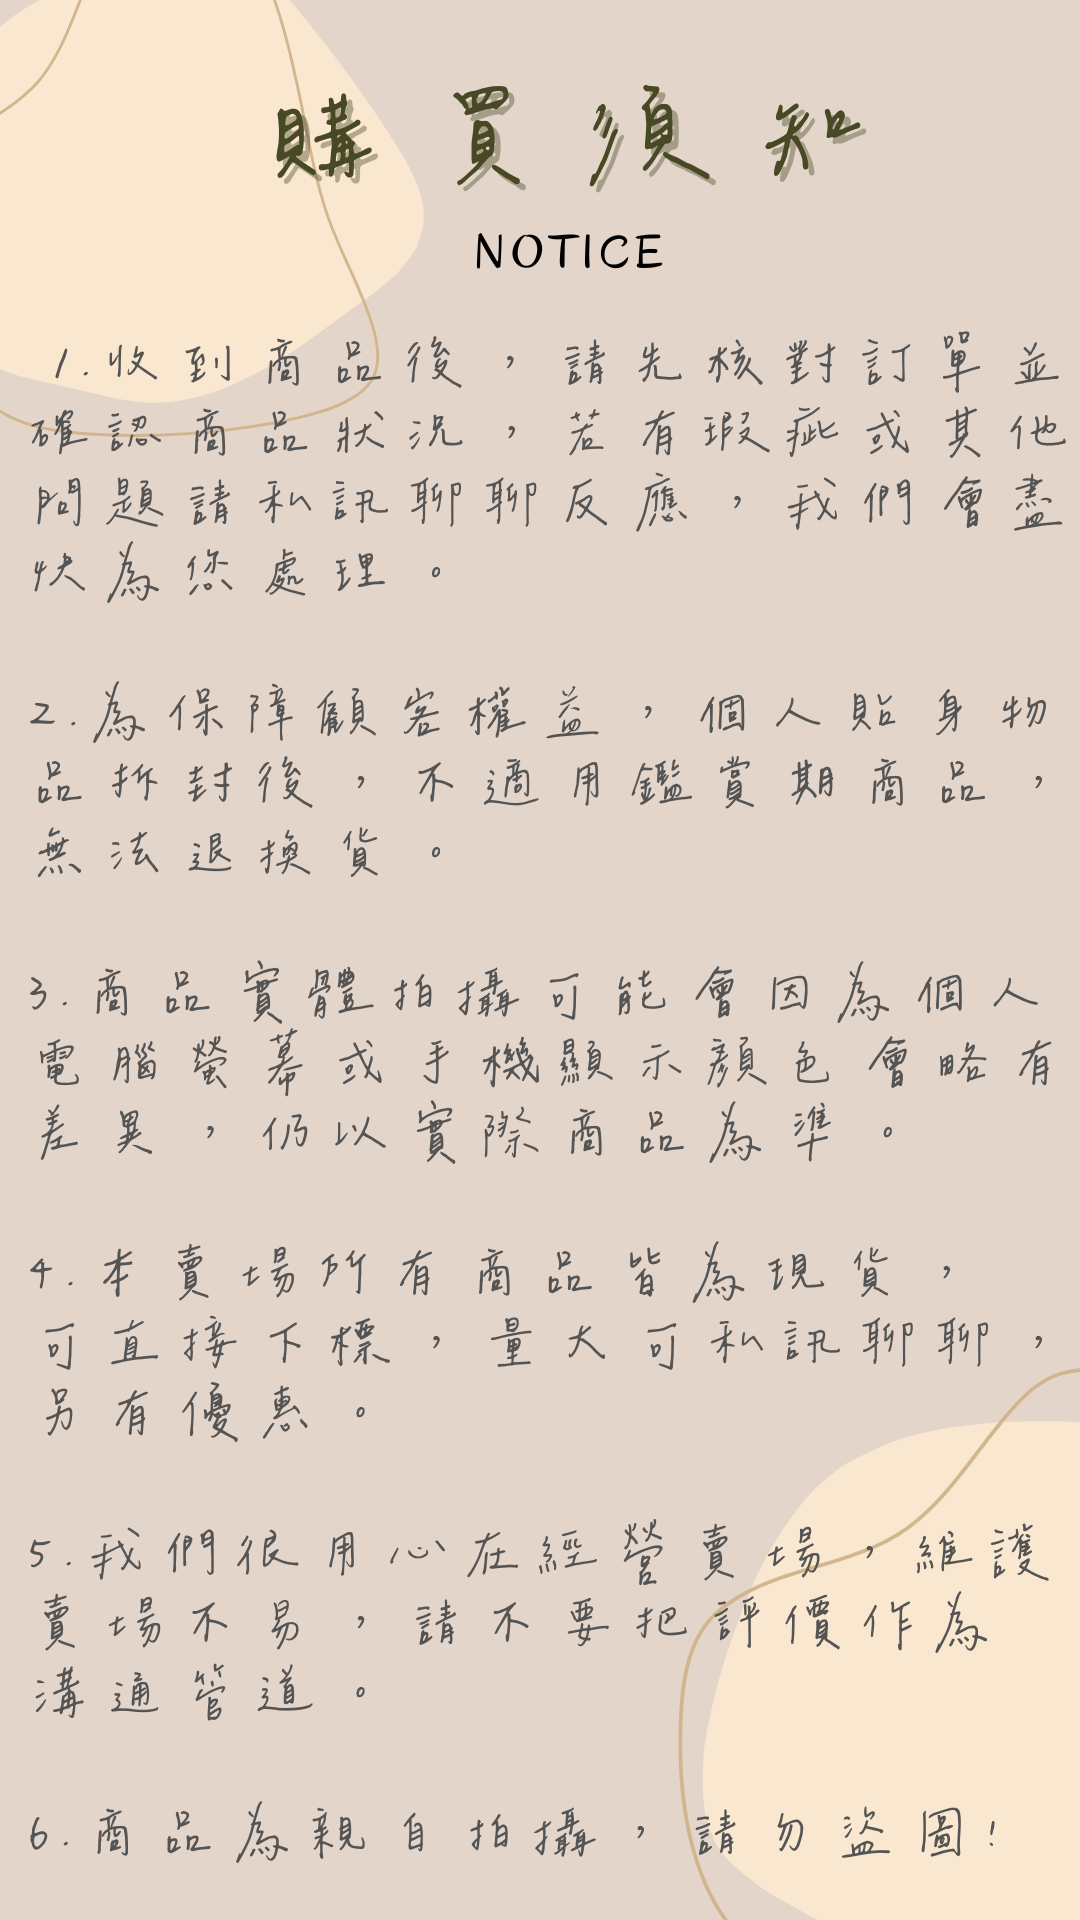 購買須知
NOTICE
1.收到商品後，請先核對訂單並
確認商品狀況，若有瑕疵或其他
問題請私訊聊聊反應，我們會盡
快為您處理。
2.為保障顧客權益，個人貼身物
品拆封後，不適用鑑賞期商品，
無法退換貨。
3.商品實體拍攝可能會因為個人
電腦螢幕或手機顯示顏色會略有
差異，仍以實際商品為準。
4.本賣場所有商品皆為現貨，
可直接下標，量大可私訊聊聊，
另有優惠。
5.我們很用心在經營賣場，維護
賣場不易，請不要把評價作為
溝通管道。
6.商品為親自拍攝，請勿盜圖!